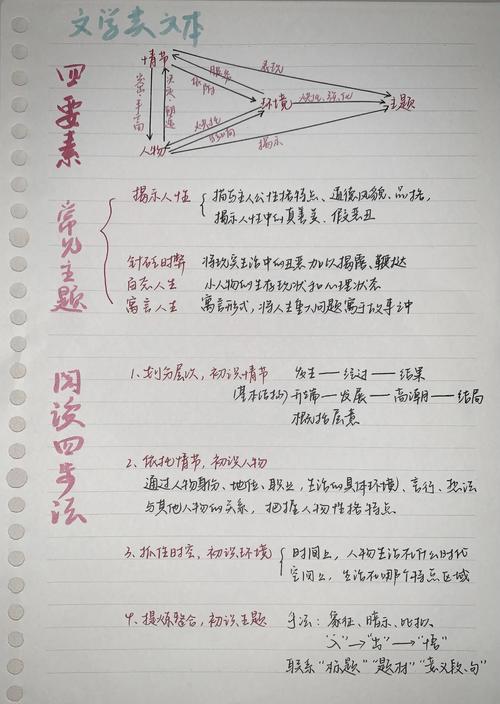 文学类文本
四要素
情节
表现
服务
依附
环境
烘托、强化
主题
烘托
影响
人物
揭示
常见主题
揭示人性
描写主人公性格特点、道德风貌、品格,
揭示人性中的真善美、假恶丑
针砭时弊 将现实生活中的丑恶加以揭露、鞭挞
百态人生 小人物的生存现状和心理状态
寓言人生 寓言形式,将人生重大问题寓于故事之中
阅读四步法
1、划分层次,初识情节 发生——经过——结果
(基本结构)开端——发展——高潮——结局
概括层意
2、依托情节,初识人物
通过人物身份、地位、职业,生活的具体环境、言行、想法
与其他人物的关系,把握人物性格特点。
3、抓住时空,初识环境
时间上,人物生活在什么时代
空间上,生活在哪个特点区域
4、提炼整合,初识主题 手法:象征、暗示、比拟
"入"→"出"→"悟"
联系"标题""题材""意义段、句"